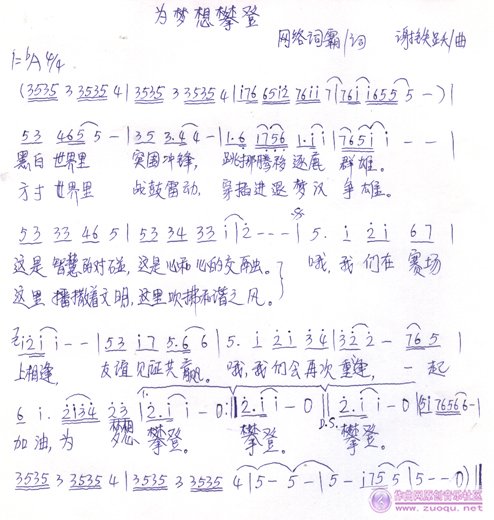 为梦想攀登
网络词霸/词 谢铁跃/曲
1=bA 4/4
(3535 3 3535 4 | 3535 3 3535 4 | i76 65i2 76ii 7 | 76i i655 5 -) |
53 465 5 - | 35 3.4 4 - | 1.6 i756 1.i i | 765i i - - |
黑白世界里 突围冲锋, 跳挪腾移逐鹿 群雄。
方寸世界里 战鼓雷动, 穿插进退 楚汉 争雄。
53 33 46 5 | 53 34 33 i | 2 - - - | 5. i 2i 67 |
这是智慧的对碰,这是心和心的交融。 哦,我们在赛场
这里播撒着文明,这里吹拂和谐之风。
i2i i - - | 53 i7 5.6 6 | 5. i 2i 34 | 322 2 - 76 5 |
上相逢, 友谊见证共赢。 哦,我们会再次重逢, 一起
6 i. 2i34 23 | 2. i i - 0 :|| 2. i i - 0 || 2. i i - 0 | 5i76566 - |
1. D.S.
加油,为 梦想 攀登。 攀登。 攀登。
3535 3 3535 4 | 3535 3 3535 4 | 5 - 5 - | 5 - i75 5 | 5 - - 0) ||
作曲网原创音乐社区
www.zuoqu.net